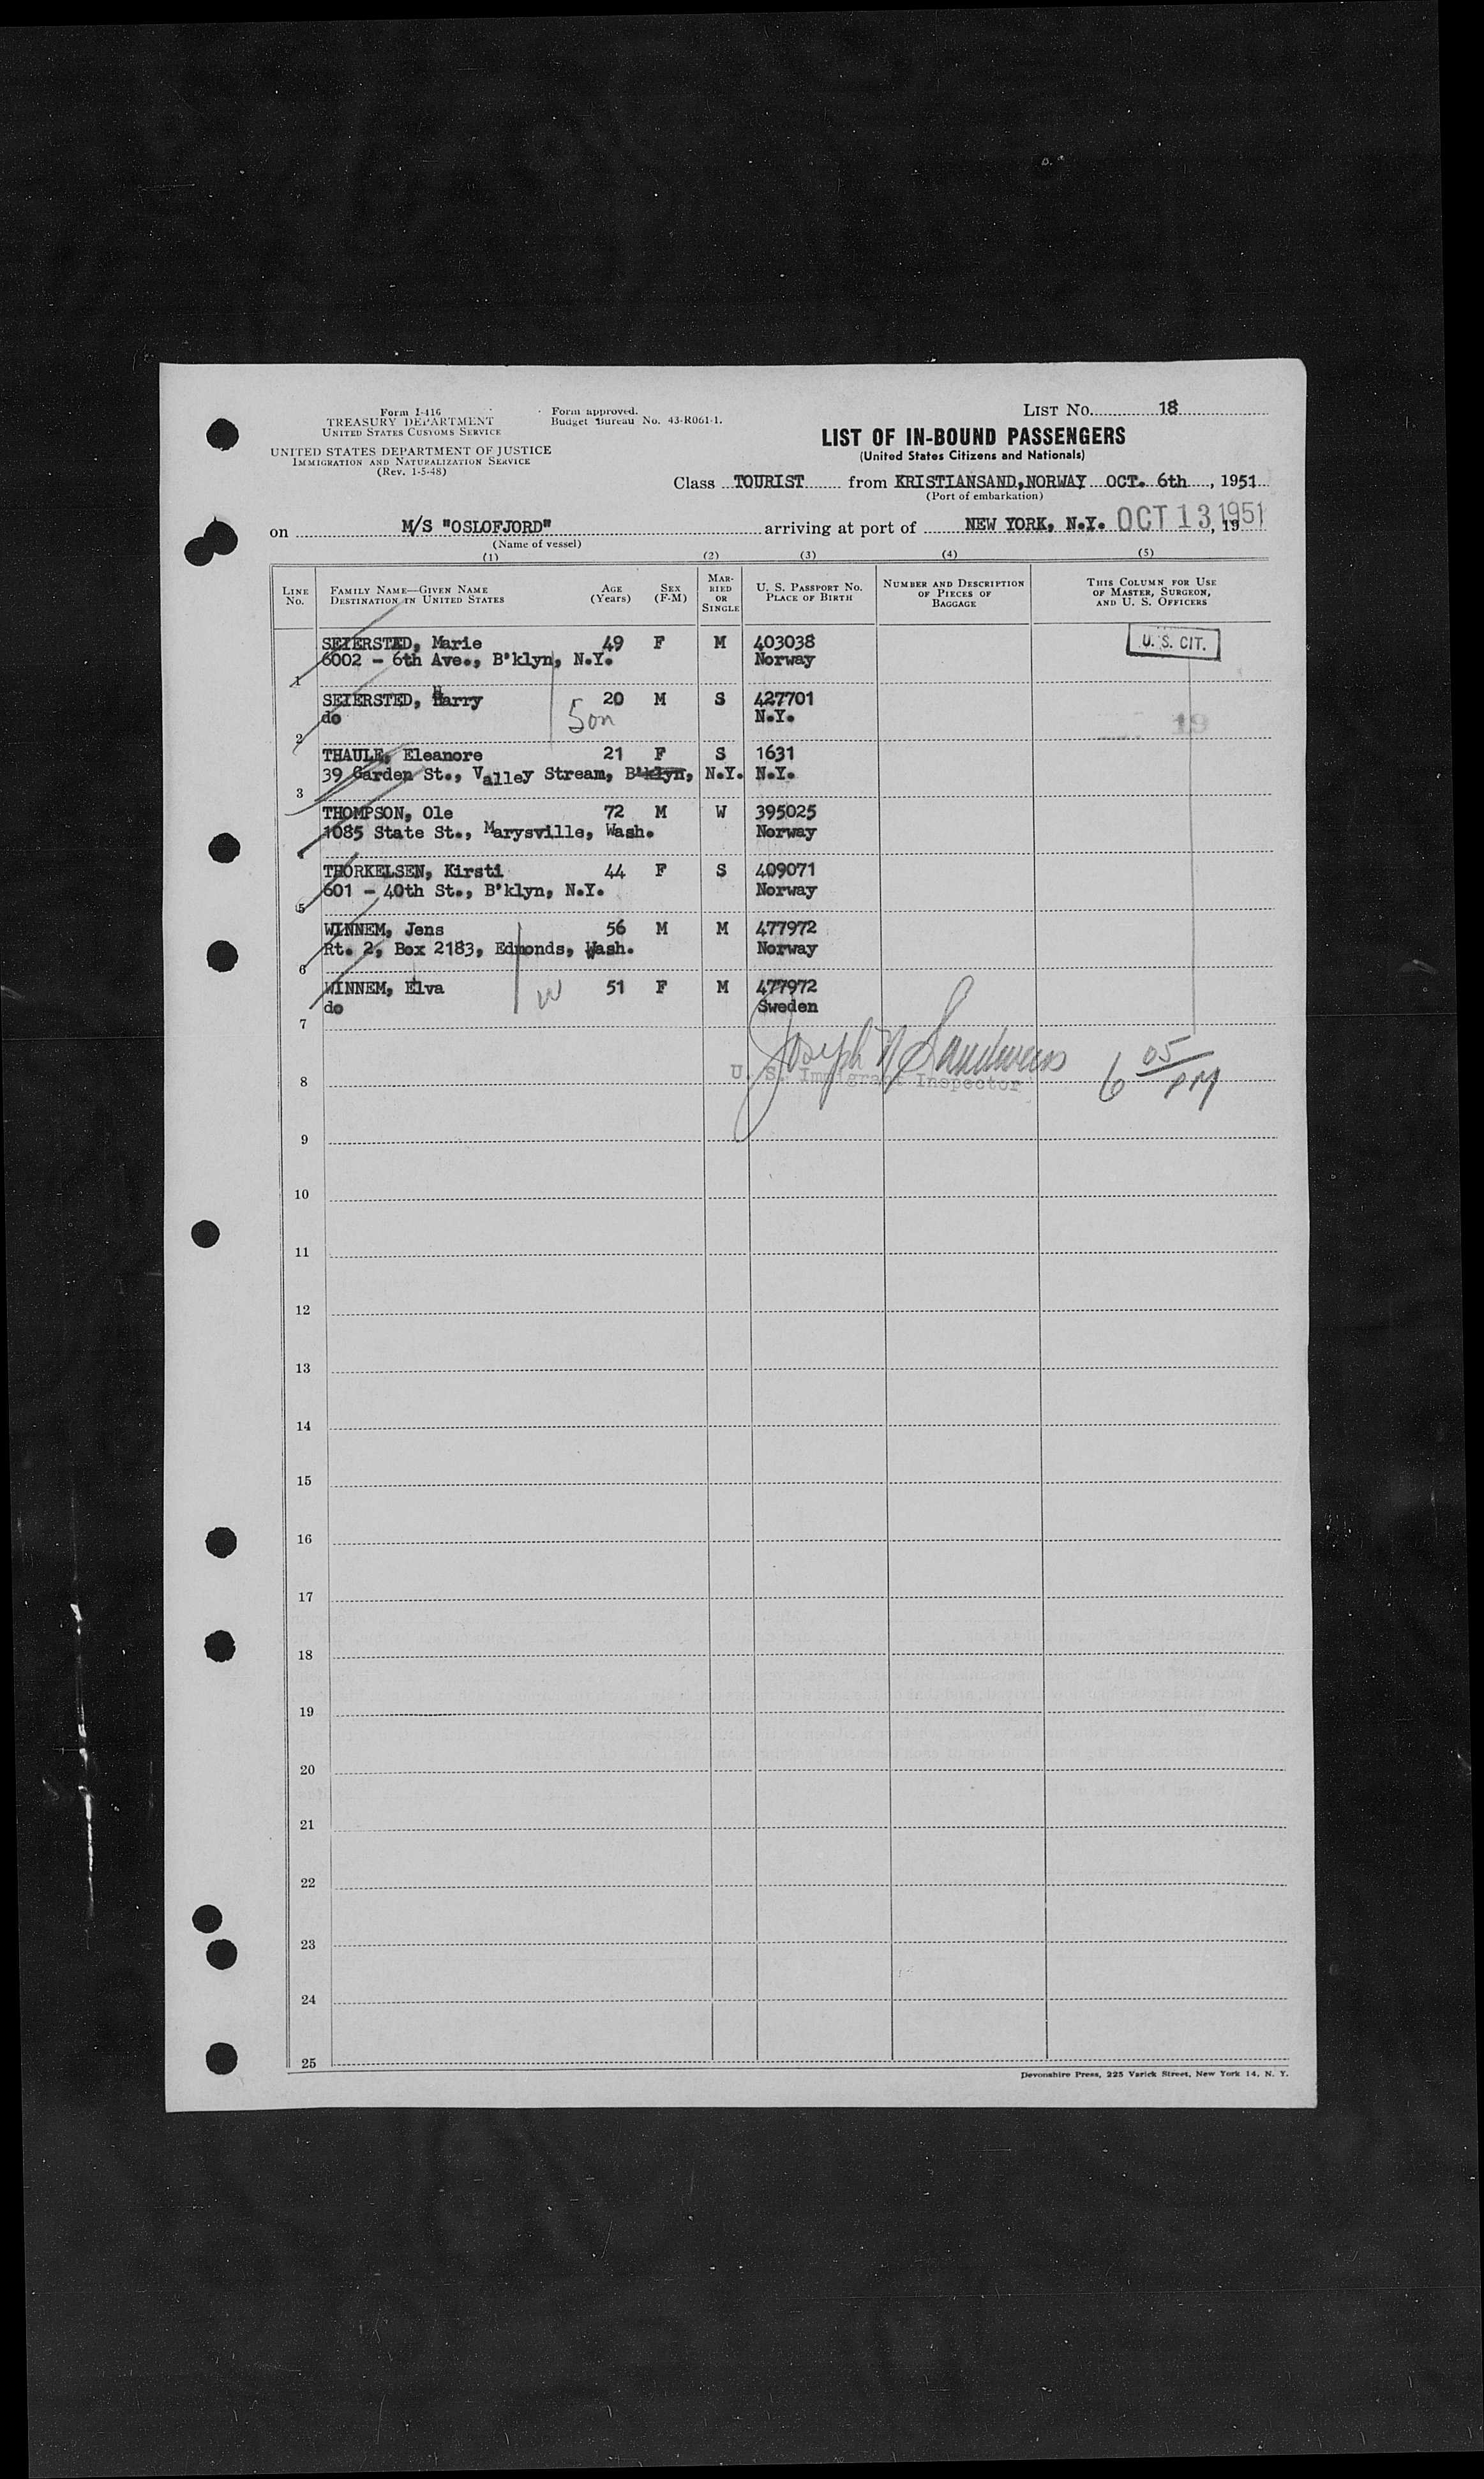 Form I-416
TREASURY DEPARTMENT
UNITED STATES CUSTOMS SERVICE
UNITED STATES DEPARTMENT OF JUSTICE
IMMIGRATION AND NATURALIZATION SERVICE
(Rev. 1-5-48)
Form approved.
Budget Bureau No. 43-R061-1.
LIST NO. 18
LIST OF IN-BOUND PASSENGERS
(United States Citizens and Nationals)
Class TOURIST from KRISTIANSAND, NORWAY OCT. 6th, 1951
(Port of embarkation)
on M/S "OSLOFJORD" arriving at port of NEW YORK, N.Y. OCT 13 1951, 19
(Name of vessel)
(1) (2) (3) (4) (5)
LINE NO. FAMILY NAME—GIVEN NAME DESTINATION IN UNITED STATES AGE (Years) SEX (F-M) MARRIED OR SINGLE U. S. PASSPORT NO. PLACE OF BIRTH NUMBER AND DESCRIPTION OF PIECES OF BAGGAGE THIS COLUMN FOR USE OF MASTER, SURGEON, AND U. S. OFFICERS
SEIERSTED, Marie 49 F M 403038 U. S. CIT.
6002 - 6th Ave., B'klyn, N.Y. Norway
1
SEIERSTED, Harry 20 M S 427701
do Son N.Y.
2 19
THAULE, Eleanore 21 F S 1631
39 Garden St., Valley Stream, B'klyn, N.Y. N.Y.
3
THOMPSON, Ole 72 M W 395025
1085 State St., Marysville, Wash. Norway
4
THORKELSEN, Kirsti 44 F S 409071
601 - 40th St., B'klyn, N.Y. Norway
5
WINNEM, Jens 56 M M 477972
Rt. 2, Box 2183, Edmonds, Wash. Norway
6
WINNEM, Elva W 51 F M 477972
do Sweden
7
Joseph N
U. S. Immigrant Inspector
6 05 PM
8
9
10
11
12
13
14
15
16
17
18
19
20
21
22
23
24
25
Devonshire Press, 225 Varick Street, New York 14, N. Y.